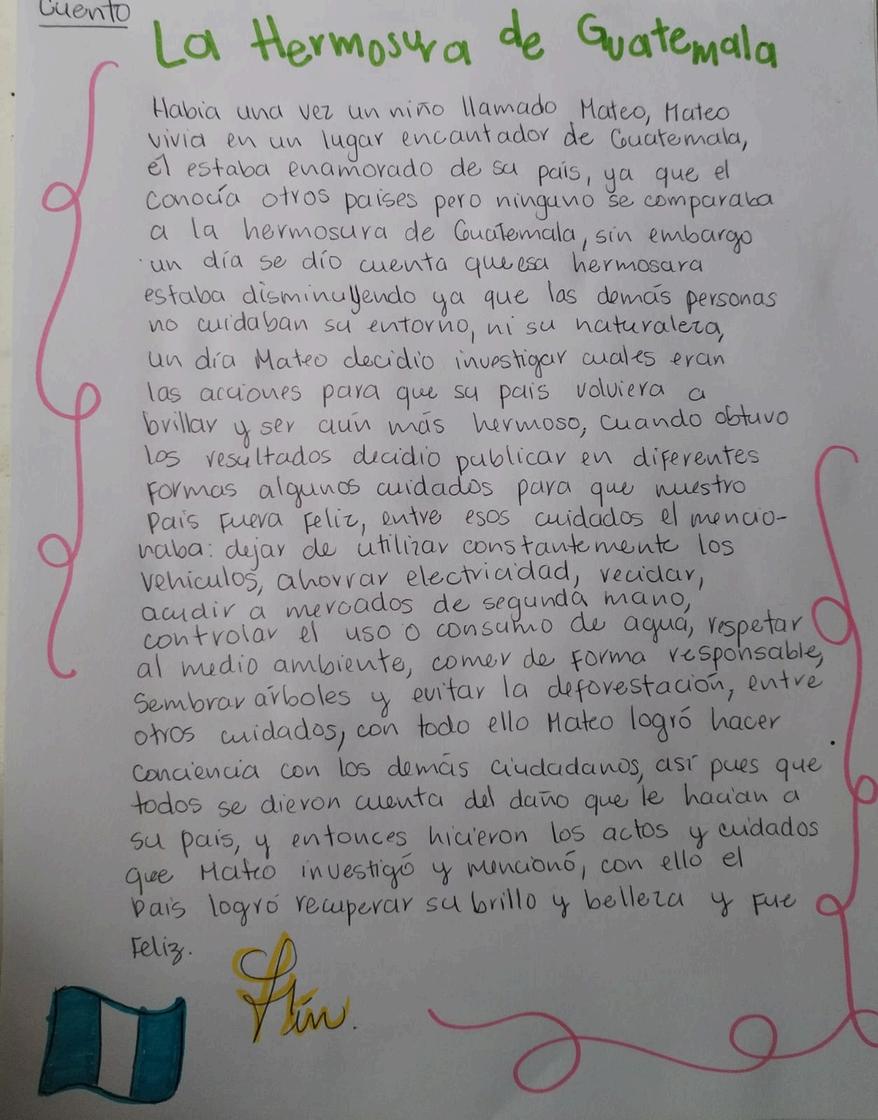 Cuento
La Hermosura de Guatemala
Habia una vez un niño llamado Mateo, Mateo
vivia en un lugar encantador de Guatemala,
él estaba enamorado de su país, ya que el
conocía otros paises pero ninguno se comparaba
a la hermosura de Guatemala, sin embargo
un día se dío cuenta que esa hermosara
estaba disminuyendo ya que las demás personas
no cuidaban su entorno, ni su naturaleza,
un día Mateo decidio investigar cuales eran
las acciones para que su pais volviera a
brillar y ser aún más hermoso, cuando obtuvo
los resultados decidio publicar en diferentes
formas algunos cuidados para que nuestro
País fuera feliz, entre esos cuidados el mencio-
naba: dejar de utilizar constantemente los
vehiculos, ahorrar electricidad, reciclar,
acudir a mercados de segunda mano,
controlar el uso o consumo de agua, respetar
al medio ambiente, comer de forma responsable,
sembrar árboles y evitar la deforestación, entre
otros cuidados, con todo ello Mateo logró hacer
conciencia con los demás ciudadanos, así pues que
todos se dieron cuenta del daño que le hacian a
su pais, y entonces hicieron los actos y cuidados
que Mateo investigó y mencionó, con ello el
País logró recuperar su brillo y belleza y fue
Feliz.
Fin.